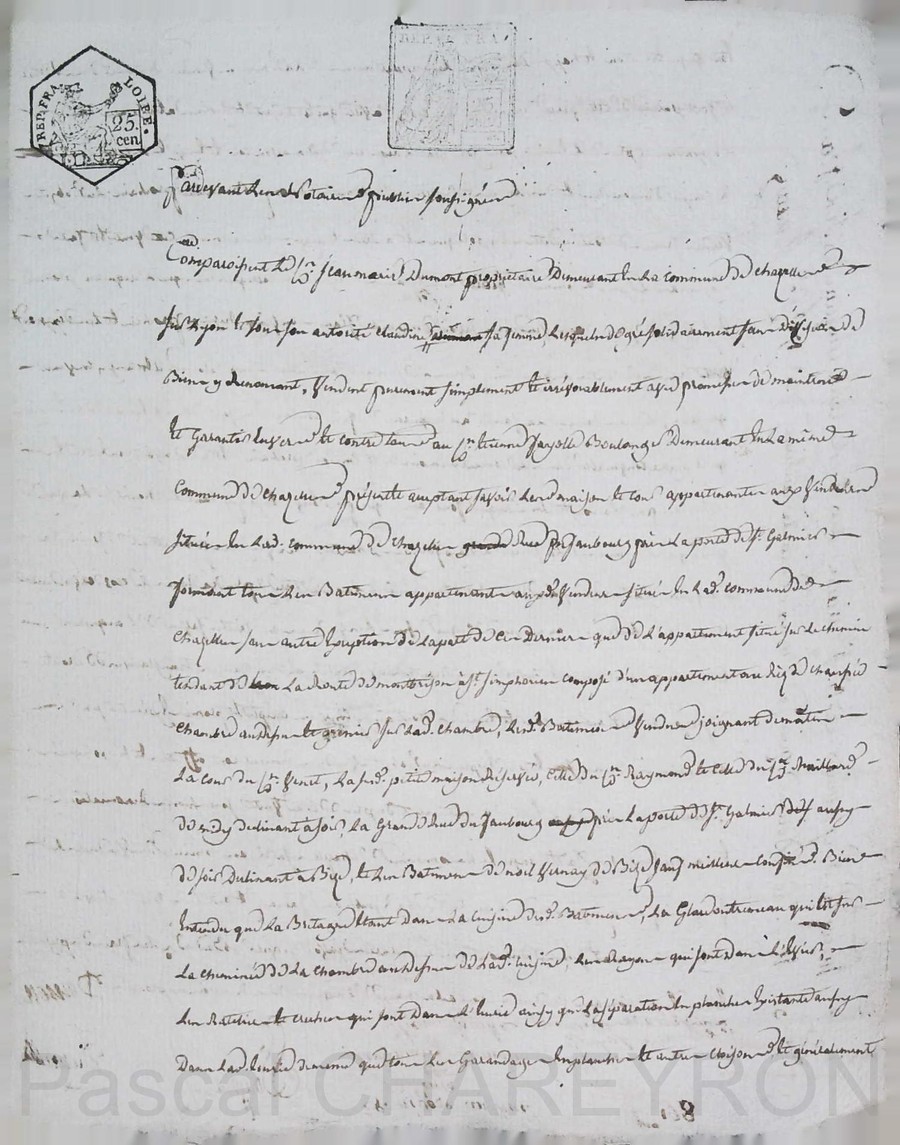 REP. FRA.
LOIRE.
25.
cen
REP. FRA.
25
Pardevant les Notaires publics soussignés
Comparoissent le Sr. Jean marie Dumont propriétaire Demeurant en la commune de chazelles
sur Lyon et sous son autorité claudine sa femme, Lesquels de gré solidairement sans Division de
Biens y renonçant, vendent purement simplement et irrévocablement avec promesse de maintenir
et Garantir envers et contre tous au Sr. Etienne Fayolle Boulanger Demeurant en la même
Commune de chazelles présent et acceptant savoir les maison et cour appartenantes aux Vendeurs
située en lad. commune de chazelles Rue et faubourg près La porte de St. Galmier
formant tous les Batimens appartenants auxd. Vendeurs située en lad. commune de
chazelles sans autre Exception de la part de ces Derniers que de l'appartement situé sur le chemin
tendant de La Route de montbrison à St. simphorien composé d'un appartement au Rèz de chaussée
chambre audessus et grenier sur lad. chambre, Lesd. Batimens Vendus joignant de matin
La cour du Sr. Venet, La sud. petite maison Réservée, celle du Sr. Raymond et celle du Sr. Maillard
de midy declinant à soir, La Grande Rue du faubourg près La porte de St. Galmier aussy
de soir Declinant à Bize, et les Batimens de noël Vernay de Bize sauf meilleurs confins. Bien
Entendu que la Bretagne Etant Dans La cuisine desd. Batimens, La Glace ou trumeau qui est sur
La cheminée de La chambre audessus de Lad. cuisine, Les Rayons qui sont dans
Les Rateliers et creches qui sont Dans L'Ecurie ainsy que La séparation en planches Existante aussy
Dans lad. Ecurie de même que tous Les Garandages en planches et autres cloisons et généralement
8
Pascal CHAREYRON